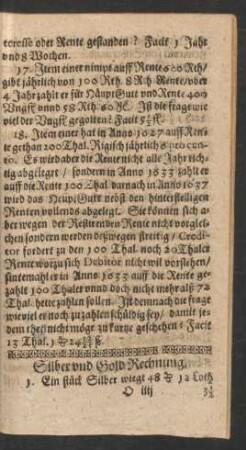 teresse oder Rente gestanden? Facit 1 Jahr
vnd 8 Wochen.
17. Item einer nimpt auff Rente 600 Rth/
gibt jährlich von 100 Rth. 8 Rth. Rente/ vber
4 Jahr zahlt er für HäuptGutt vnd Rente 400
Vngfl vnnd 58 Rth. 60 Ist die frage wie
viel der Vngfl gegolten? Facit 5½ fl.
18. Item einer hat in Anno 1627 auff Ren-
te gethan 200 Thal. Rigisch jährlichs procen-
to. Es wird aber die Rente nicht alle Jahr rich-
tig abgeleget / sondern in Anno 1633 zahlt er
auff die Rente 100 Thal. darnach in Anno 1637
wird das HeuptGutt nebst den hinterstelligen
Renten vollends abgelegt. Sie können sich a-
ber wegen der Restirenden Rente nicht verglei-
chen sondern werden deßwegen streitig / Credi-
tor fordert zu den 100 Thal. noch 20 Thaler
Rente worzu sich Debitor nicht wil vorstehen/
alldiemahl er in Anno 1633 auff die Rente ge-
zahlt 100 Thaler vnnd doch nicht mehr als 72
Thal. hette zahlen sollen. Ist demnach die frage
wie viel er noch zu zahlen schüldig sey / damit je-
dem theil nicht möge zu kurtz geschehen? Facit
13 Thal. 1 24
Silber vnd Gold Rechnung.
1. Ein stück Silber wiegt 48 12 Loth
O iiij 3¼